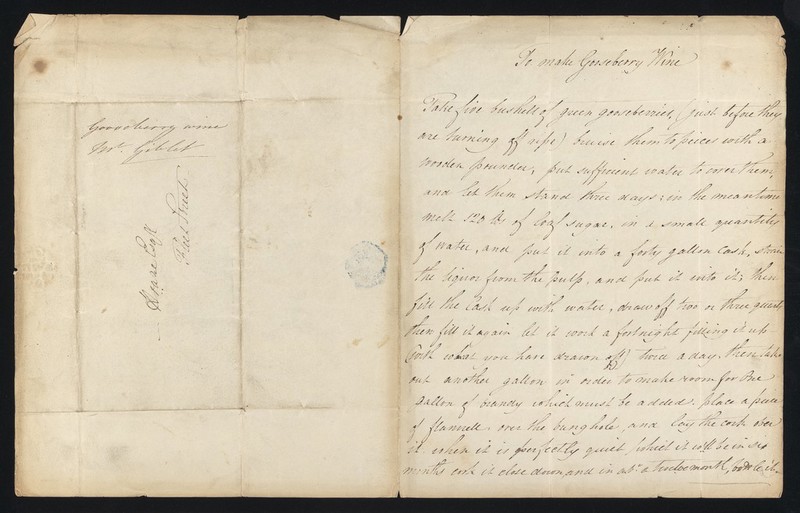 Gooseberry wine
Mr. Giblet
Hoare Esqr
Fleet Street
To make Gooseberry Wine
Take five bushells of green gooseberries, (just before they
are turning off ripe) bruise them to pieces with a
wooden pounder, put sufficient water to cover them,
and let them stand three days: in the meantime
melt 120 lb of loaf sugar, in a small quantity
of water, and put it into a forty gallon cask, strain
the liquor from the pulp, and put it into it; then
fill the cask up with water, draw off two or three quarts
then fill it again let it work a fortnight filling it up
(with what you have drawn off) twice a day, then take
out another gallon in order to make room for One
gallon of brandy which must be added. place a piece
of flannell over the bunghole, and lay the cork over
it when it is perfectly quiet, which it will be in six
months cork it close down, and in abt a twelvemonth, bottle it.